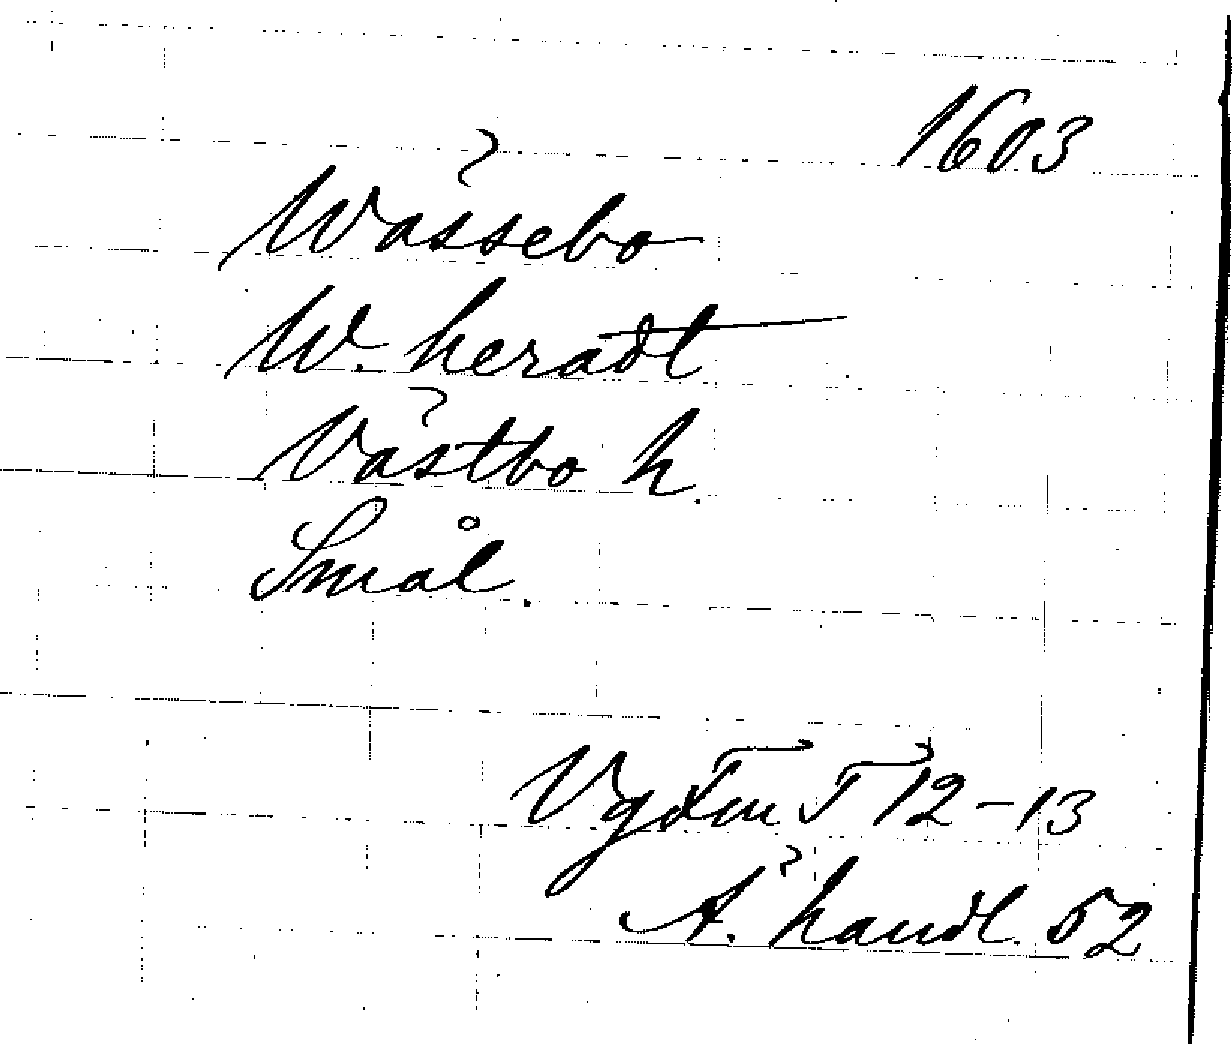 1603
Wässebo
W. heradt
Västbo h.
Smål.
12-13
Ä. handl. 52